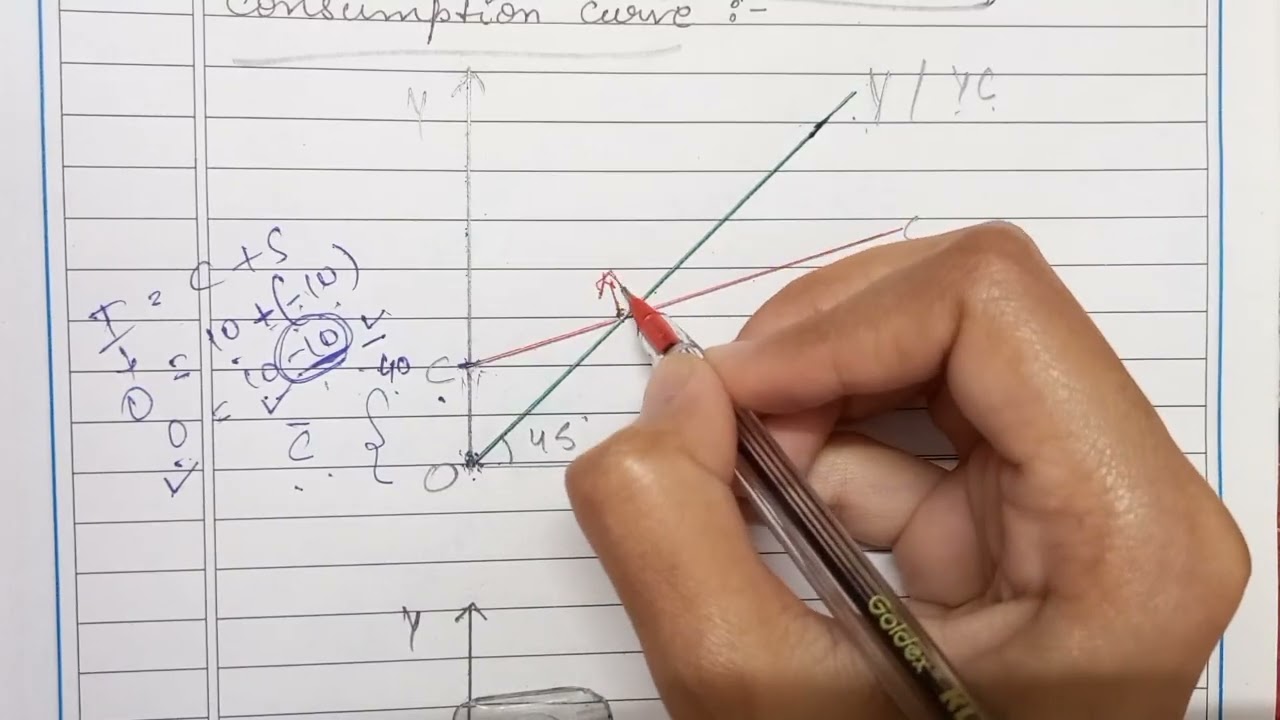 consumption curve :-
Y
Y / YC
C
C + S
I = 10 + (-10)
0 = 10 -10
-40
C
0 <
C̄
A
45°
O
Y
Goldex